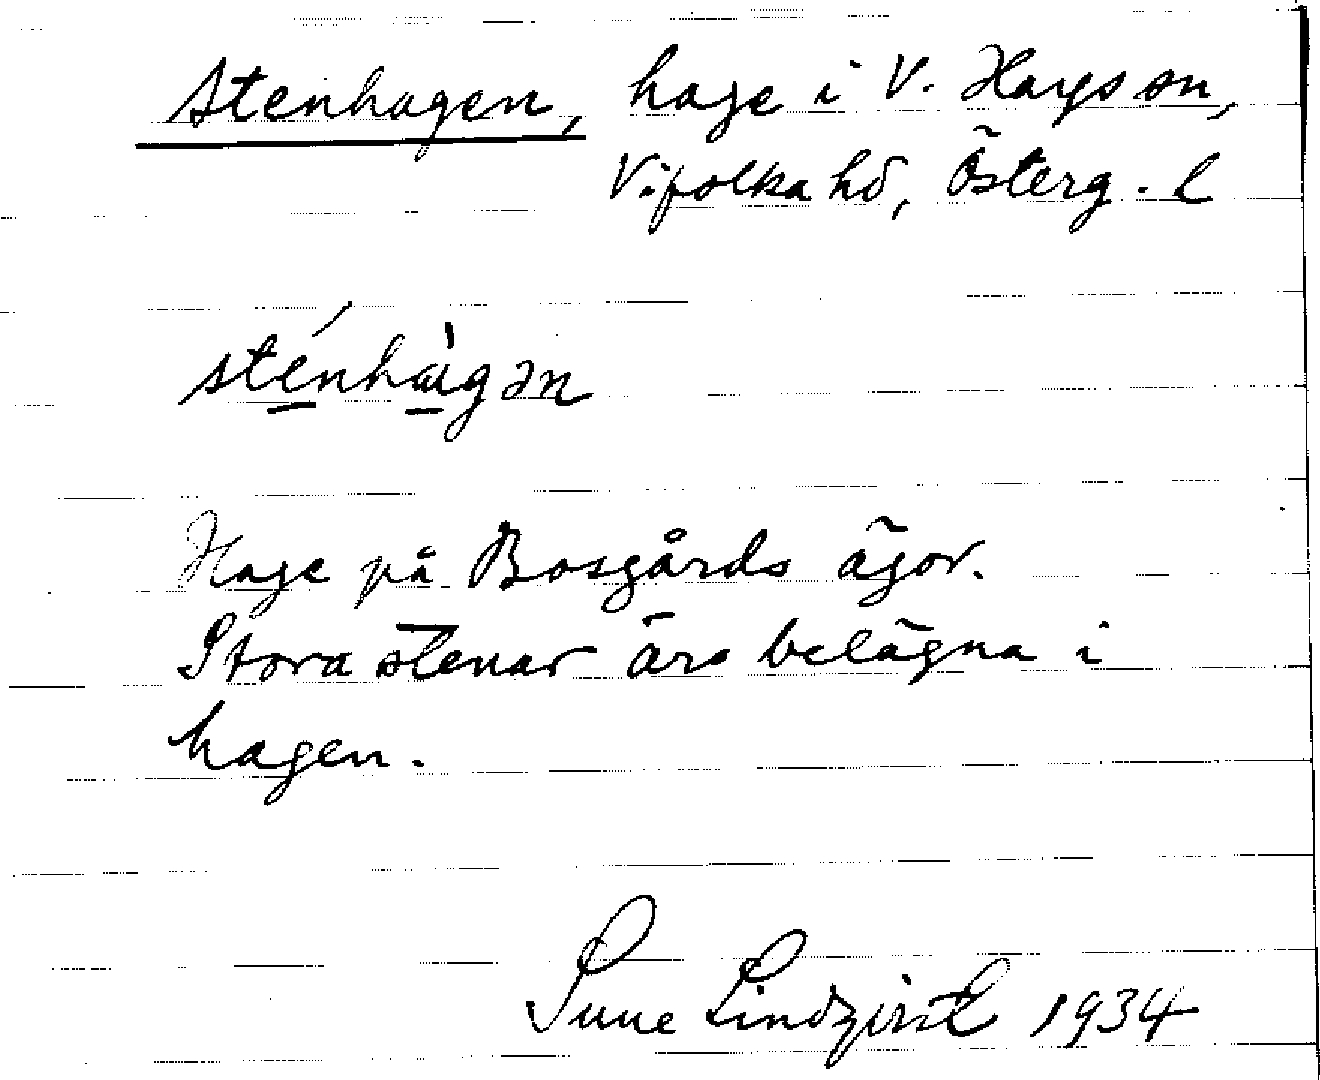 Stenhagen, hage i V. Hargs sn,
Vifolka hd, Österg. l
sténhàgən
Hage på Bosgårds ägor.
Stora stenar äro belägna i
hagen.
Sune Lindqvist 1934